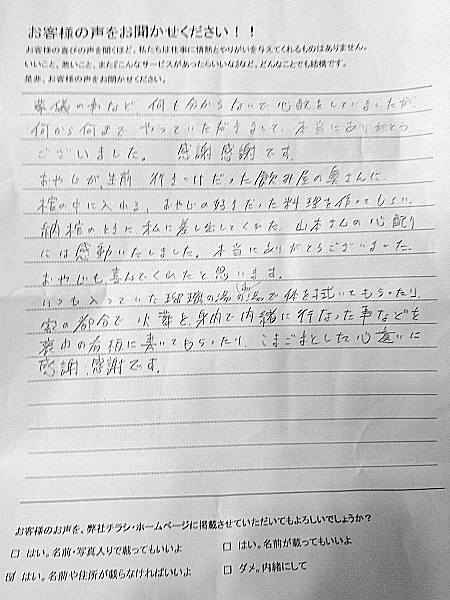 お客様の声をお聞かせください！！
お客様の喜びの声を聞くほど、私たちは仕事に情熱とやりがいを与えてくれるものはありません。
いいこと、悪いこと、また『こんなサービスがあったらいいな』など、どんなことでも結構です。
是非、お客様の声をお聞かせください。
葬儀の事など、何も分からないで心配をしていましたが、
何から何まで やっていただきまして、本当にありがとう
ございました。 感謝感謝です。
おやじが生前 行きつけだった飲み屋の奥さんに、
棺の中に入れる、おやじの好きだった料理を作ってもらい
納棺のときに私に差し出してくれた、山本さんの心配り
には感動いたしました。本当にありがとうございました。
おやじも喜んでくれたと思います。
いつも入っていた瑠璃の湯のお湯で体を拭いてもらったり、
家の都合で 火葬と、身内で内緒に行なった事などを
案内の看板に書いてもらったり、こまごまとした心遣いに
感謝、感謝です。
お客様のお声を、弊社チラシ・ホームページに掲載させていただいてもよろしいでしょうか？
□ はい。名前・写真入りで載ってもいいよ
□ はい。名前が載ってもいいよ
☑ はい。名前や住所が載らなければいいよ
□ ダメ。内緒にして